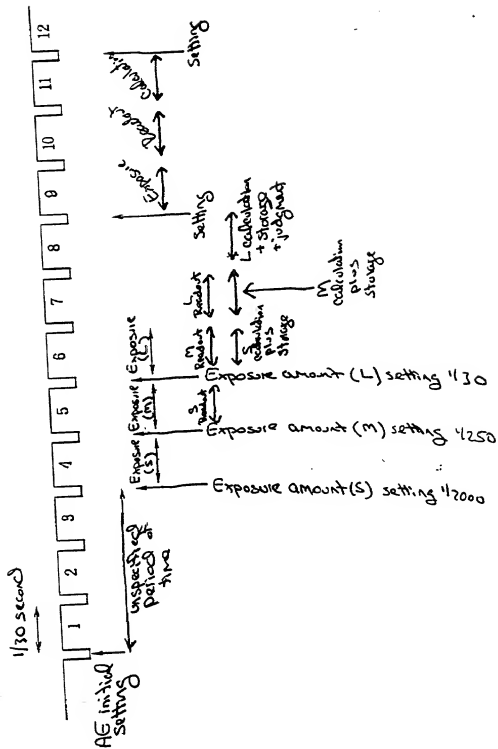 1/30 second
1
2
3
4
5
6
7
8
9
10
11
12
AE initial
setting
unspecified
period of
time
Exposure
(S)
Exposure
(M)
Exposure
(L)
S
Readout
M
Readout
L
Readout
S
calculation
plus
storage
M
calculation
plus
storage
L calculation
+ storage
+ judgment
Exposure amount (S) setting 1/2000
Exposure amount (M) setting 1/250
Exposure amount (L) setting 1/30
Setting
Exposure
Readout
Calculation
Setting